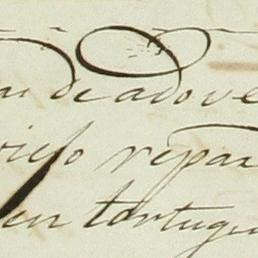 de adove
viejo repar
en tortugu